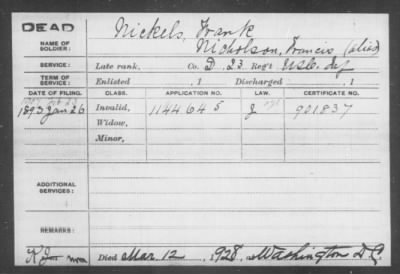 DEAD
NAME OF SOLDIER:
Nickels, Frank
Nicholson, Francis (alias)
SERVICE:
Late rank, Co. D, 23 Reg't U.S.C. Inf
TERM OF SERVICE:
Enlisted , 1 Discharged , 1
DATE OF FILING. CLASS. APPLICATION NO. LAW. CERTIFICATE NO.
1893 Jan 26 Invalid, 1144645 J 901837
Widow,
Minor,
ADDITIONAL SERVICES:
REMARKS:
Died Mar. 12, 1928, Washington D.C.